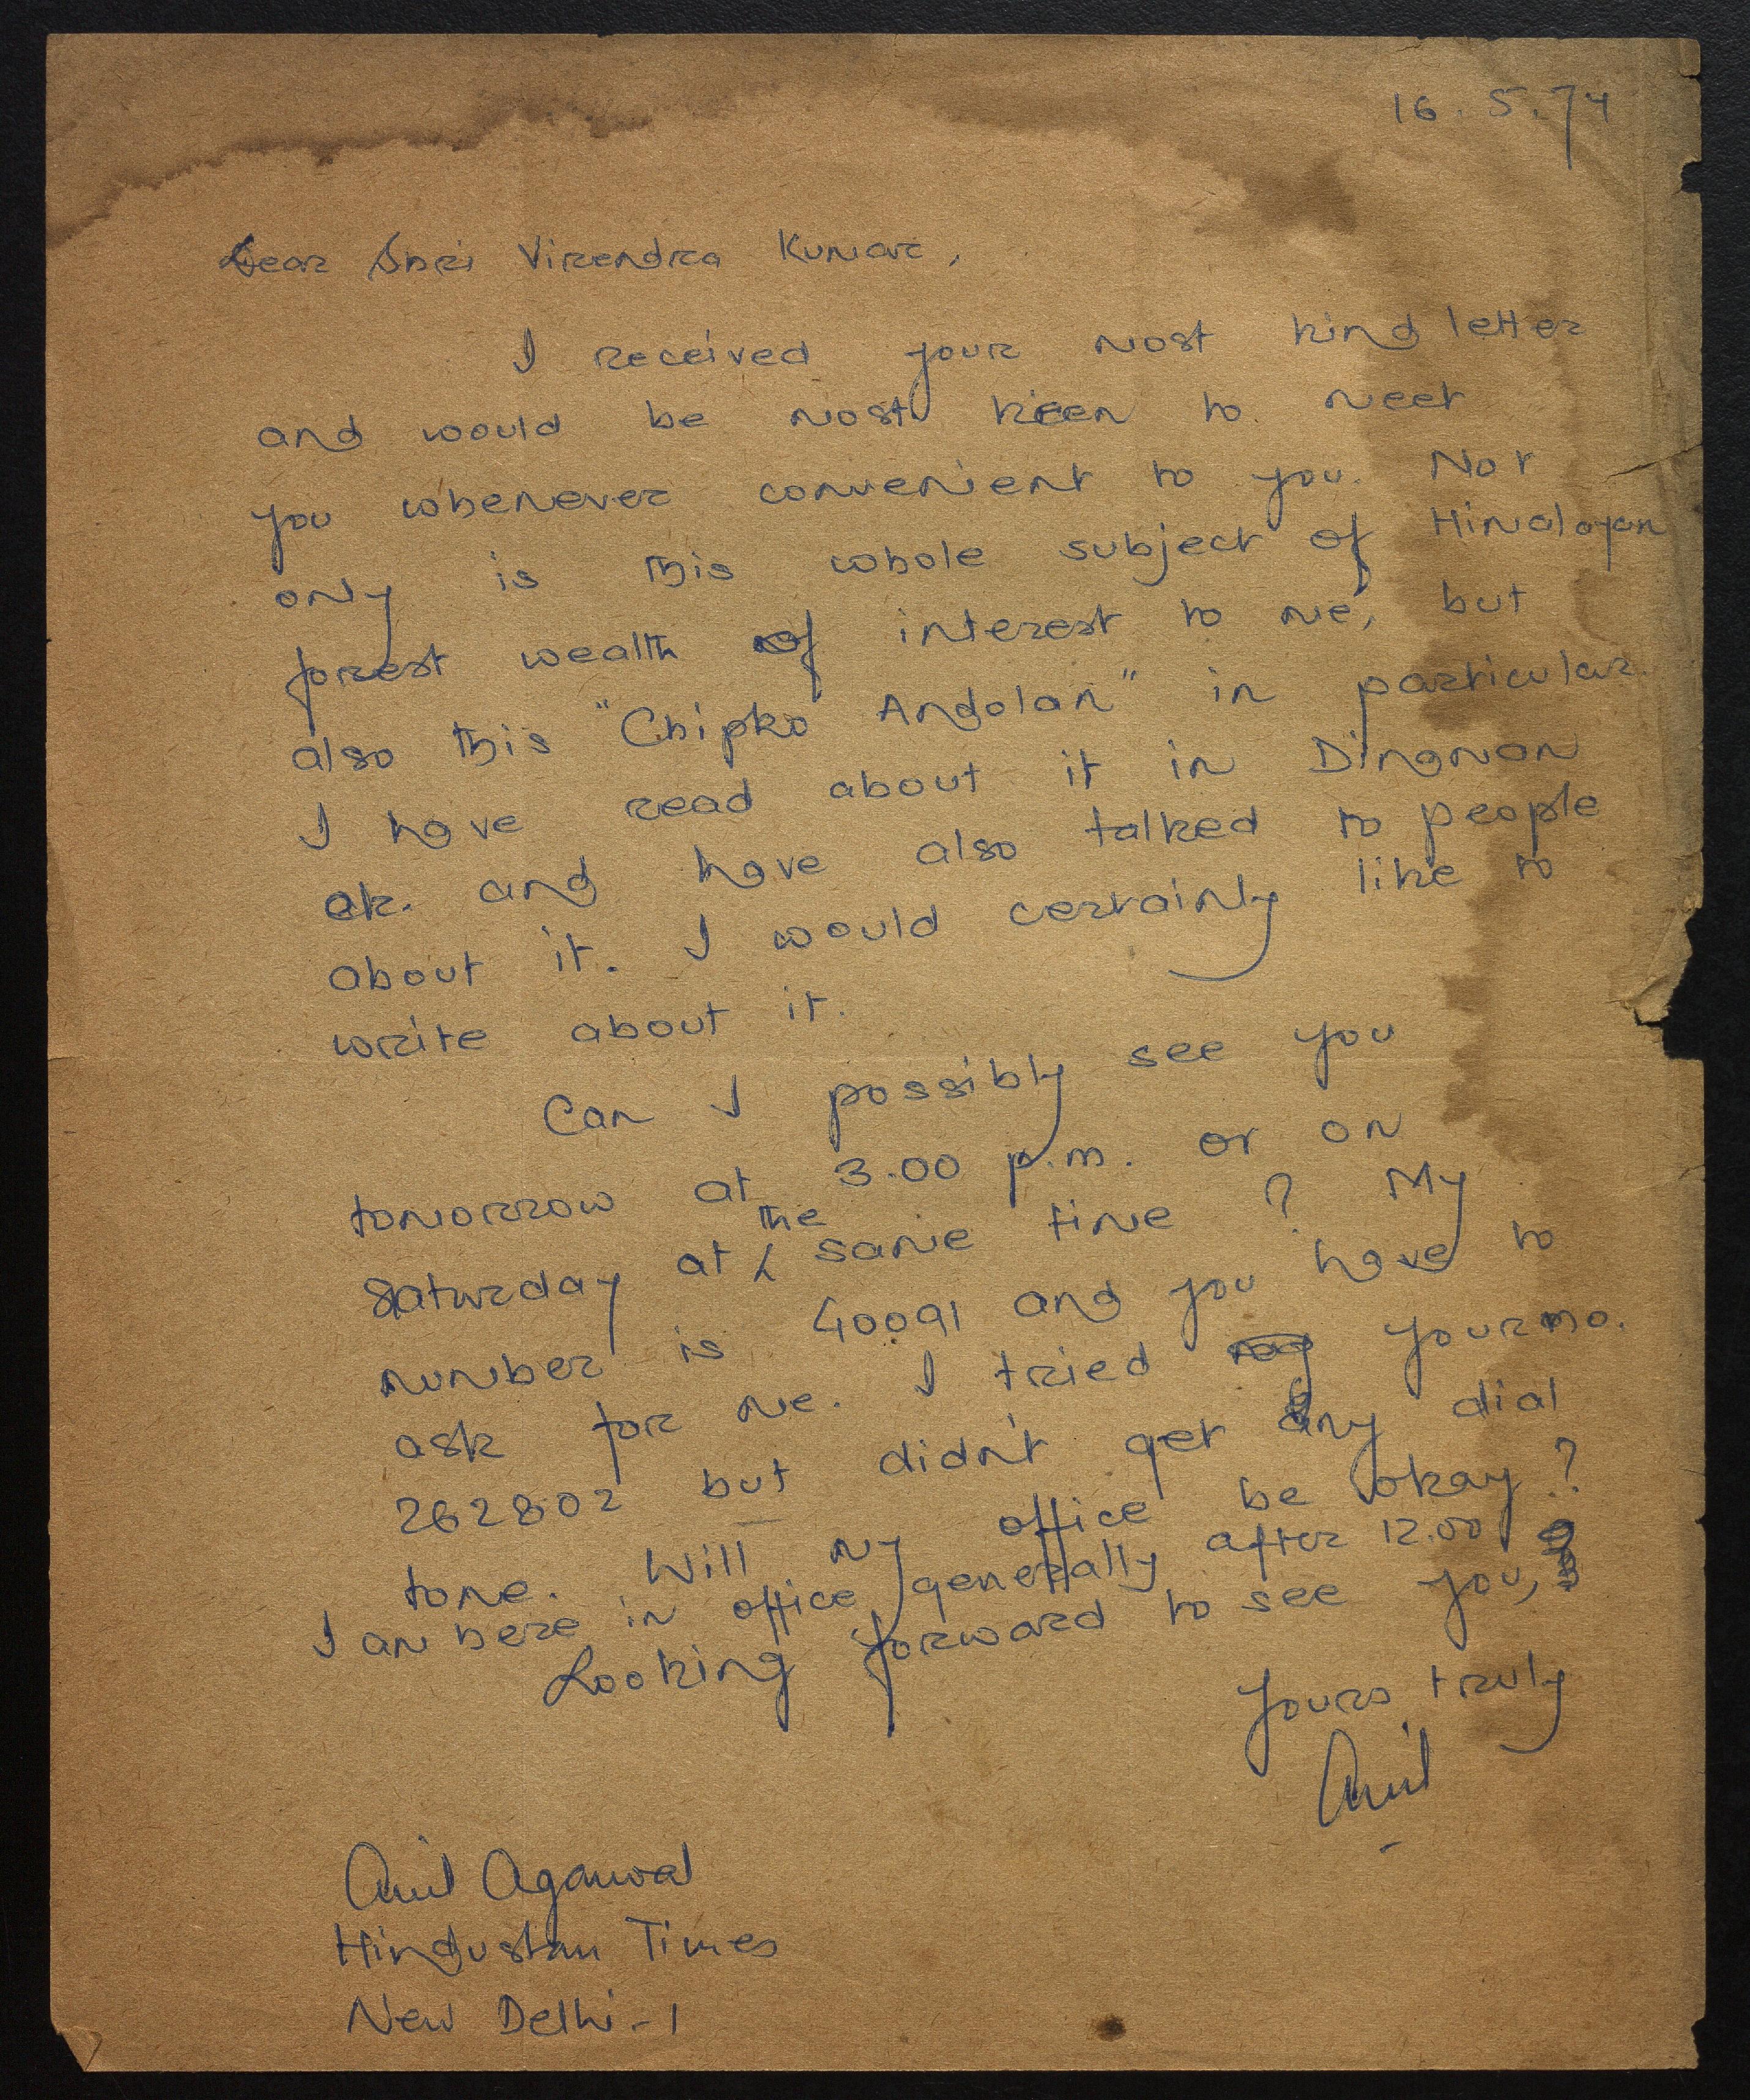 16.5.74
Dear Shri Virendra Kumar,
I received your most kind letter
and would be most keen to meet
you whenever convenient to you. Not
only is this whole subject of Himalayan
forest wealth of interest to me, but
also this "Chipko Andolan" in particular.
I have read about it in Dinaman
ek. and have also talked to people
about it. I would certainly like to
write about it.
Can I possibly see you
tomorrow at 3.00 p.m. or on
Saturday at the same time ? My
number is 40091 and you have to
ask for me. I tried your no.
262802 but didn't get any dial
tone. Will my office be okay ?
I am here in office generally after 12.00
Looking forward to see you,
Yours truly
Anil
Anil Agarwal
Hindustan Times
New Delhi-1